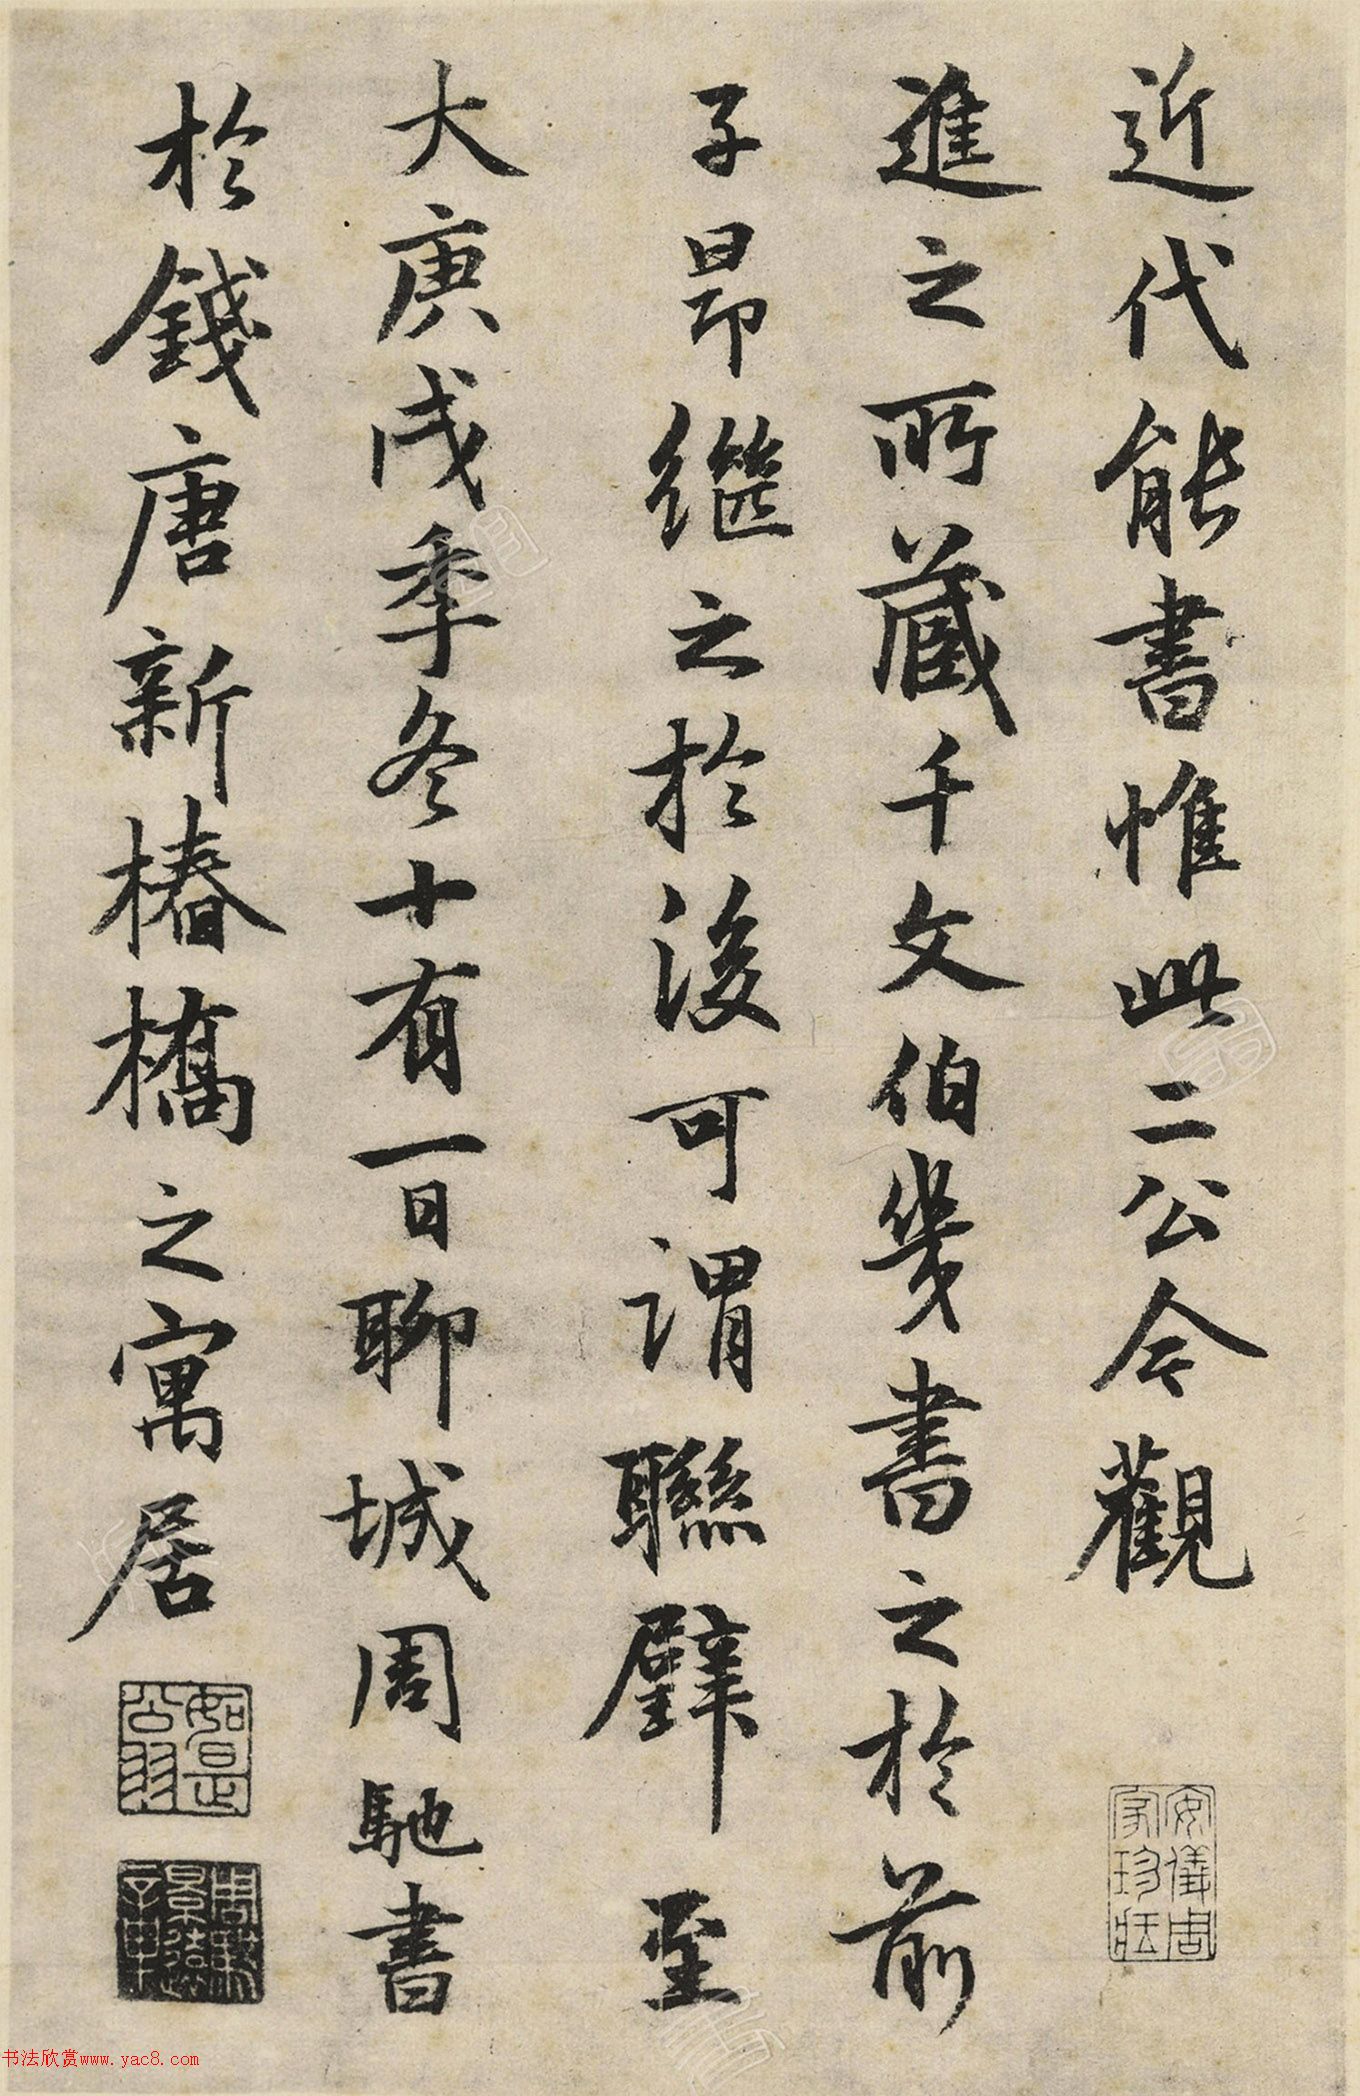 近代能書惟此二公今觀
進之所藏千文伯幾書之於前
子昂繼之於後可謂聯璧至
大庚戌季冬十有一日聊城周馳書
於錢唐新樁橋之寓居
如是公羽
安儀周家珍藏
书法欣赏www.yac8.com